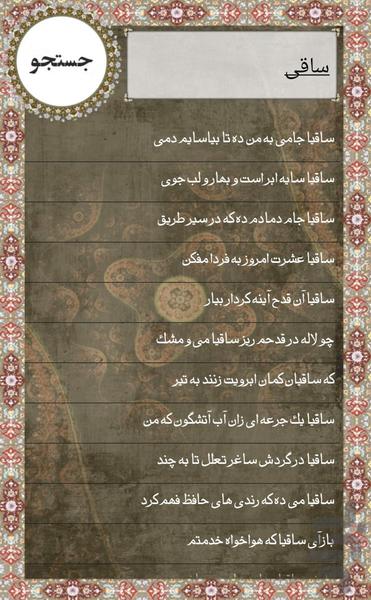 جستجو
ساقی
ساقیا جامی به من ده تا بیاسایم دمی
ساقیا سایه ابر است و بهار و لب جوی
ساقیا جام دمادم ده که در سیر طریق
ساقیا عشرت امروز به فردا مفکن
ساقیا آن قدح آینه کردار بیار
چو لاله در قدحم ریز ساقیا می و مشک
که ساقیان کمان ابرویت زنند به تیر
ساقیا یک جرعه ای زان آب آتشگون که من
ساقیا در گردش ساغر تعلل تا به چند
ساقیا می ده که رندی های حافظ فهم کرد
بازآی ساقیا که هواخواه خدمتم